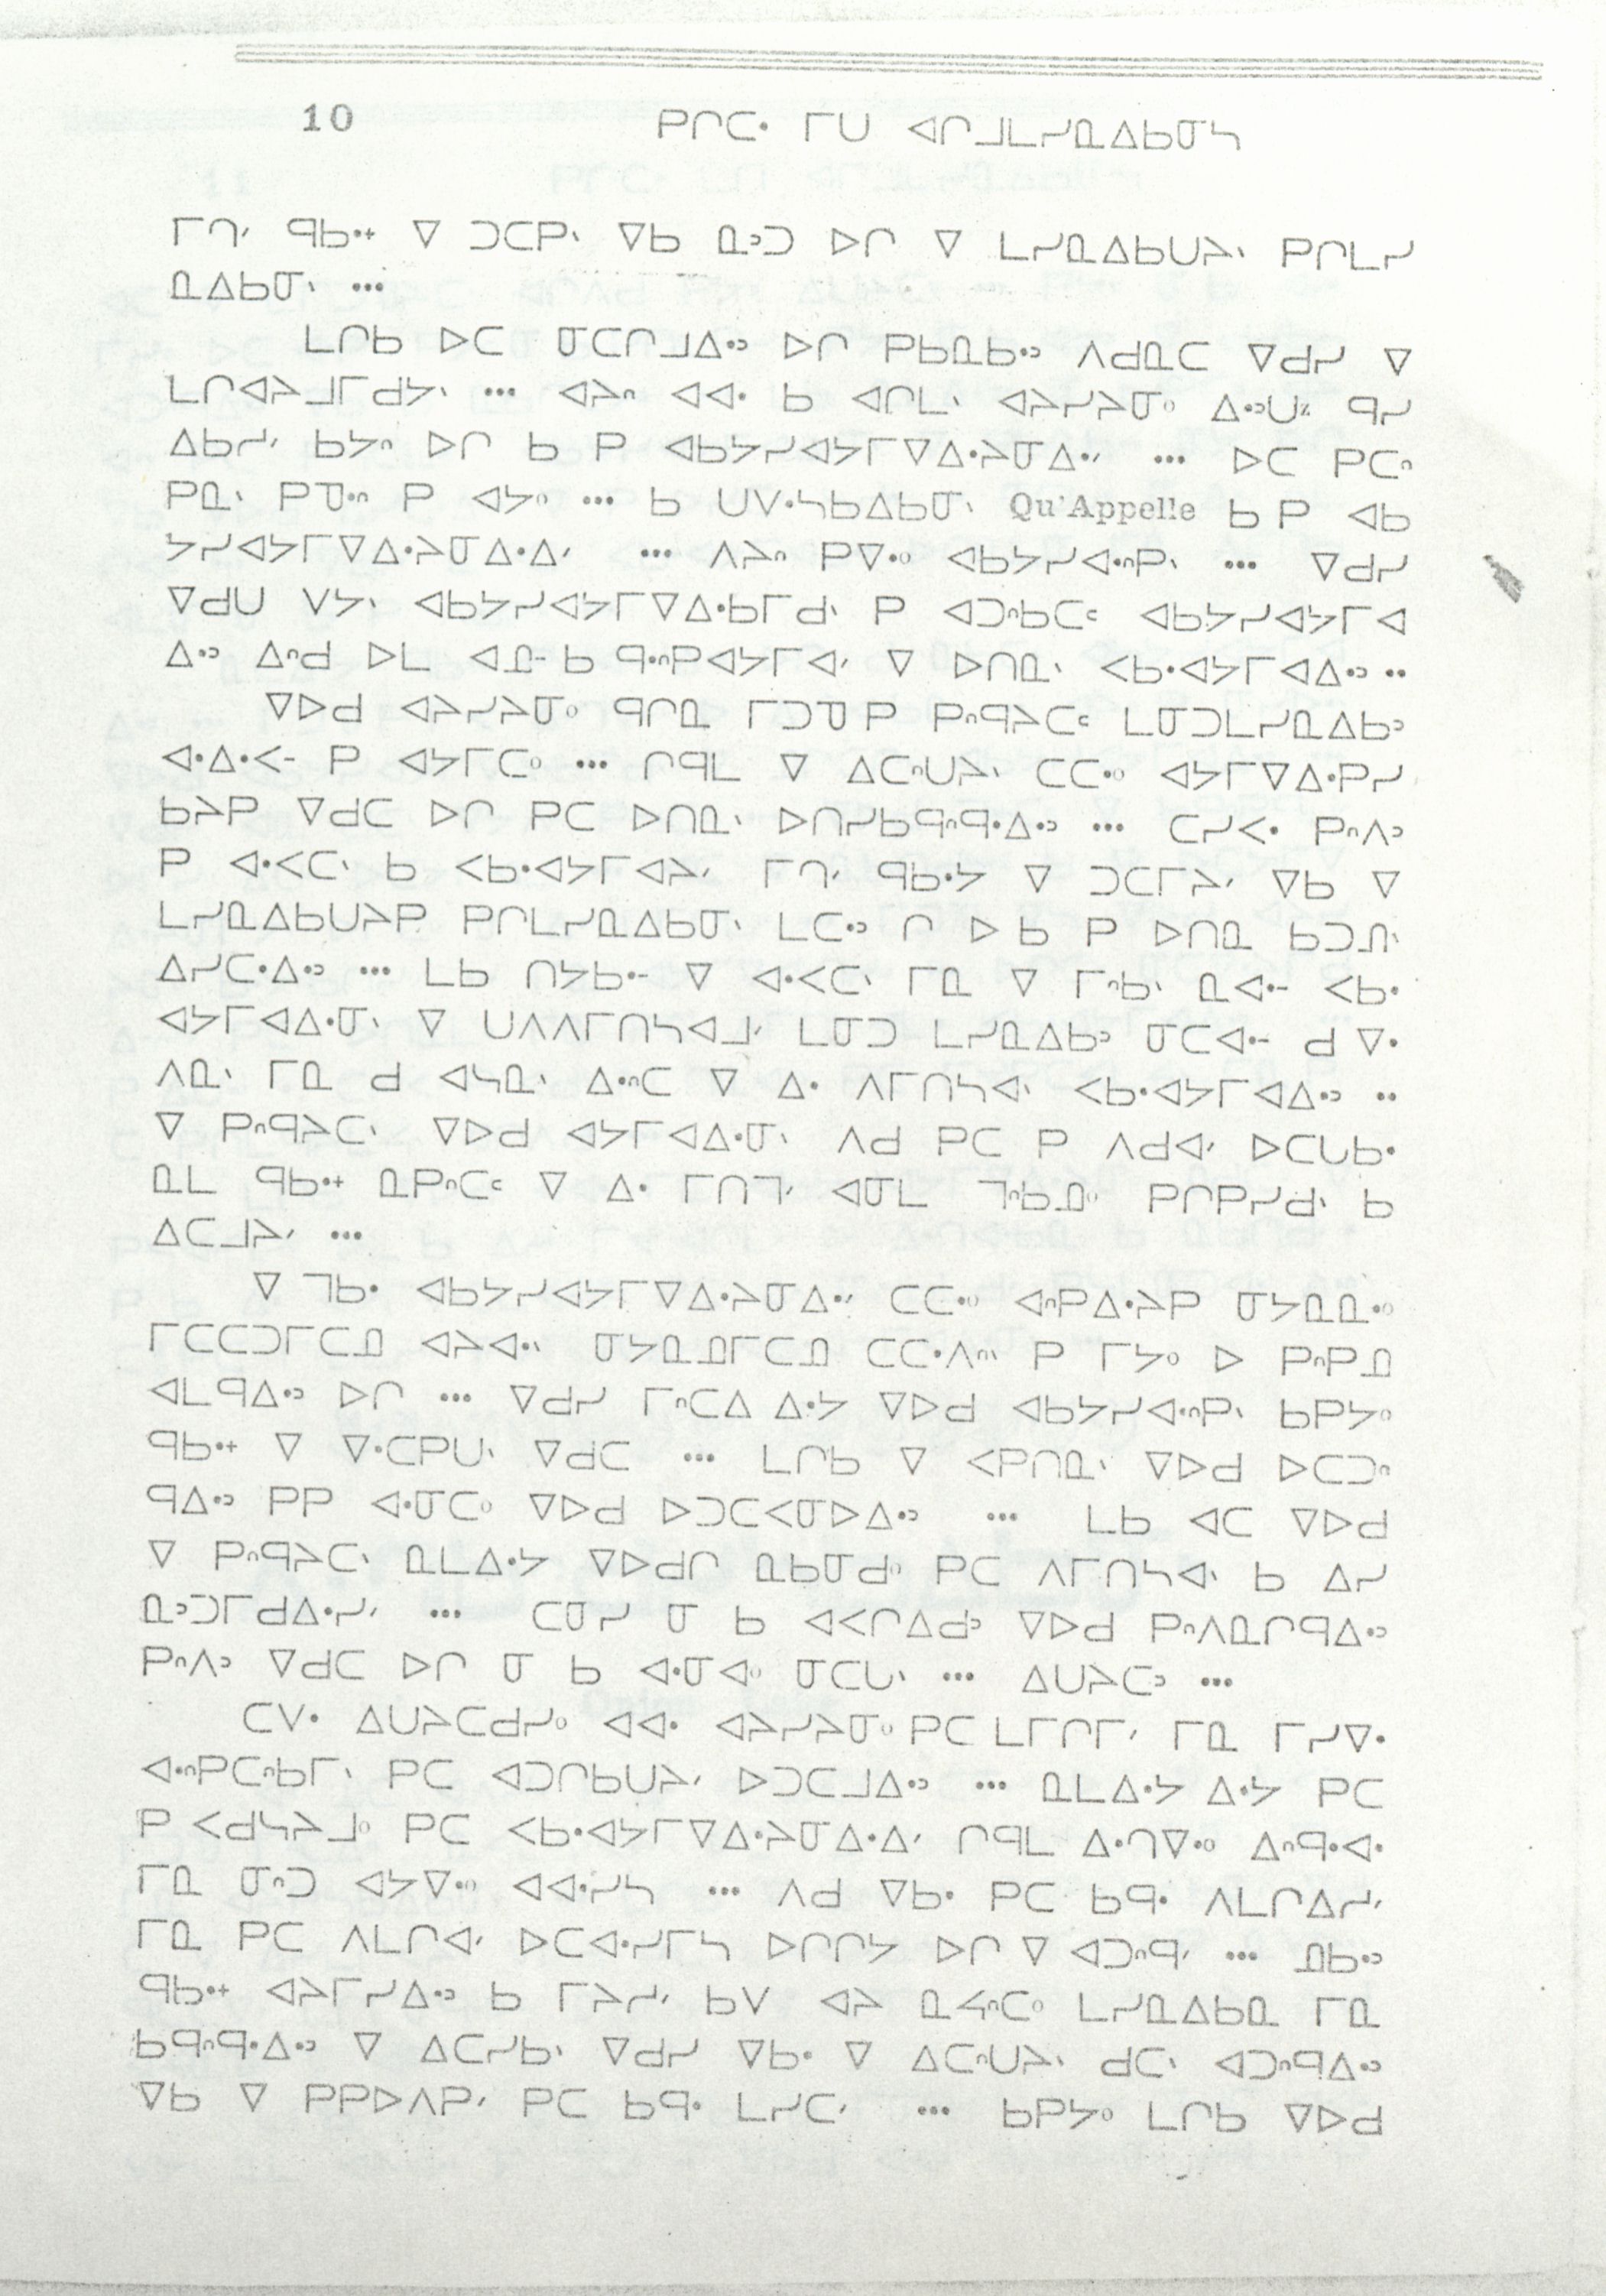 10 ᑭᒋᑕᐧ ᒥᑌ ᐊᒋᒧᒪᓯᓇᐃᑲᓂᓴ
ᒥᒉᐟ ᑫᑲᐧᕀ ᐁ ᑐᑕᑭᐠ ᐁᑲ ᓇᐣᑐ ᐅᒋ ᐁ ᒪᓯᓇᐃᑲᑌᔨᐠ ᑭᒋᒪᓯ
ᓇᐃᑲᓂᐠ ...
ᒪᒋᑲ ᐅᑕ ᓂᑕᒋᒧᐃᐧᐣ ᐅᒋ ᑭᑲᓇᑲᐧᐣ ᐱᑯᓇᑕ ᐁᑯᓯ ᐁ
ᒪᒋᐊᔨᒧᒥᑯᔭᐠ ... ᐊᔨᐢ ᐊᐊᐧ ᑲ ᐊᒋᒪᐠ ᐊᔨᓯᔨᓂᐤ ᐃᐧᐣᑌᕁ ᑫᓯ
ᐃᑲᓯᐟ ᑲᔭᐢ ᐅᒋ ᑲ ᑭ ᐊᑲᔭᓯᐊᔭᒥᐁᐃᐧᔨᓂᐃᐧᐟ ... ᐅᑕ ᑭᑕᐢ
ᑭᓇᐠ ᑭᑯᐧᐢ ᑭ ᐊᔭᐤ ... ᑲ ᑌᐯᐧᓴᑲᐃᑲᓂᐠ Qu'Appelle ᑲ ᑭ ᐊᑲ
ᔭᓯᐊᔭᒥᐁᐃᐧᔨᓂᐃᐧᐃᐟ ... ᐱᔨᐢ ᑭᐁᐧᐤ ᐊᑲᔭᓯᐊᐧᐢᑭᐠ ... ᐁᑯᓯ
ᐁᑯᑌ ᐯᔭᐠ ᐊᑲᔭᓯᐊᔭᒥᐁᐃᐧᑲᒥᑯᐠ ᑭ ᐊᑐᐢᑲᑕᒼ ᐊᑲᔭᓯᐊᔭᒥᐊ
ᐃᐧᐣ ᐃᐢᑯ ᐅᒪ ᐊᓄᐨ ᑲ ᑫᐧᐢᑭᐊᔭᒥᐊᐟ ᐁ ᐅᑎᓇᐠ ᐸᑲᐧᐊᔭᒥᐊᐃᐧᐣ ..
ᐁᐅᑯ ᐊᔨᓯᔨᓂᐤ ᑫᒋᓇ ᒥᑐᓀ ᑭ ᑭᐢᑫᔨᑕᒼ ᒪᓂᑐᒪᓯᓇᐃᑲᐣ
ᐊᐧᐃᐧᐸᐨ ᑭ ᐊᔭᒥᑕᐤ ... ᒋᑫᒪ ᐁ ᐃᑕᐢᑌᔨᐠ ᑕᑕᐧᐤ ᐊᔭᒥᐁᐃᐧᑭᓯ
ᑲᔨᑭ ᐁᑯᑕ ᐅᒋ ᑭᑕ ᐅᑎᓇᐠ ᐅᑎᓯᑲᑫᐢᑫᐧᐃᐧᐣ ... ᑕᓯᐸᐧ ᑭᐢᐱᐣ
ᑭ ᐊᐧᐸᑕᐠ ᑲ ᐸᑲᐧᐊᔭᒥᐊᔨᐟ ᒥᒉᐟ ᑫᑲᐧᔭ ᐁ ᑐᑕᒥᔨᐟ ᐁᑲ ᐁ
ᒪᓯᓇᐃᑲᑌᔨᑭ ᑭᒋᒪᓯᓇᐃᑲᓂᐠ ᒪᑕᐧᐣ ᒋ ᐅ ᑲ ᑭ ᐅᑎᓇ ᑲᑐᓄᐠ
ᐃᓯᑕᐧᐃᐧᐣ ... ᒪᑲ ᑎᔭᑲᐧᐨ ᐁ ᐊᐧᐸᑕᐠ ᒥᓇ ᐁ ᒥᐢᑲᐠ ᓇᐊᐧᐨ ᐸᑲᐧ
ᐊᔭᒥᐊᐃᐧᓂᐠ ᐁ ᑌᐱᐱᒥᑎᓴᐊᒧᐟ ᒪᓂᑐ ᒪᓯᓇᐃᑲᐣ ᓂᑕᐊᐧᐨ ᑯ ᐁᐧ
ᐱᓇᐠ ᒥᓇ ᑯ ᐊᓴᓇᐠ ᐃᐧᐢᑕ ᐁ ᐃᐧ ᐱᒥᑎᓴᐊᐠ ᐸᑲᐧᐊᔭᒥᐊᐃᐧᐣ ..
ᐁ ᑭᐢᑫᔨᑕᐠ ᐁᐅᑯ ᐊᔭᒥᐊᐃᐧᓂᐠ ᐱᑯ ᑭᑕ ᑭ ᐱᑯᐊᐟ ᐅᑕᒐᑲᐧ
ᓇᒪ ᑫᑲᐧᕀ ᓇᑭᐢᑕᒼ ᐁ ᐃᐧ ᒥᑎᒣᐟ ᐊᓂᒪ ᒣᐢᑲᓄᐤ ᑭᒋᑭᓯᑯᐠ ᑲ
ᐃᑕᒧᔨᐟ ...
ᐁ ᒣᑲᐧ ᐊᑲᔭᓯᐊᔭᒥᐁᐃᐧᔨᓂᐃᐧᐟ ᑕᑕᐧᐤ ᐊᐢᑭᐃᐧᔨᑭ ᓂᔭᓇᓇᐧᐤ
ᒥᑕᑕᑐᒥᑕᓄ ᐊᔨᐊᐧᐠ ᓂᔭᓇᓄᒥᑕᓄ ᑕᑕᐧᐱᐢᐠ ᑭ ᒥᔭᐤ ᐅ ᑭᐢᑭᓄ
ᐊᒪᑫᐃᐧᐣ ᐅᒋ ... ᐁᑯᓯ ᒥᐢᑕᐃ ᐃᐧᔭ ᐁᐅᑯ ᐊᑲᔭᓯᐊᐧᐢᑭᐠ ᑲᑭᔭᐤ
ᑫᑲᐧᕀ ᐁ ᐁᐧᑕᑭᑌᐠ ᐁᑯᑕ ... ᒪᒋᑲ ᐁ ᐸᑭᑎᓇᐠ ᐁᐅᑯ ᐅᑕᑐᐢ
ᑫᐃᐧᐣ ᑭᑭ ᐊᐧᓂᑕᐤ ᐁᐅᑯ ᐅᑐᑕᐸᓂᐅᐃᐧᐣ ... ᒪᑲ ᐊᑕ ᐁᐅᑯ
ᐁ ᑭᐢᑫᔨᑕᐠ ᓇᒪᐃᐧᔭ ᐁᐅᑯᒋ ᓇᑲᓂᑯᐤ ᑭᑕ ᐱᒥᑎᓴᐊᐠ ᑲ ᐃᓯ
ᓇᐣᑐᒥᑯᐃᐧᓯᐟ ... ᑕᓂᓯ ᓂ ᑲ ᐊᐸᒋᐃᑯᐣ ᐁᐅᑯ ᑭᐢᐱᓇᒋᑫᐃᐧᐣ
ᑭᐢᐱᐣ ᐁᑯᑕ ᐅᒋ ᓂ ᑲ ᐊᐧᓂᐊᐤ ᓂᑕᒐᐠ ... ᐃᑌᔨᑕᐣ ...
ᑕᐯᐧ ᐃᑌᔨᑕᑯᓯᐤ ᐊᐊᐧ ᐊᔨᓯᔨᓂᐤ ᑭᑕ ᒪᒥᒋᒥᐟ ᒥᓇ ᒥᓯᐁᐧ
ᐊᐧᐢᑭᑕᐢᑲᒥᐠ ᑭᑕ ᐊᑐᒋᑲᑌᔨᐟ ᐅᑐᑕᒧᐃᐧᐣ ... ᓇᒪᐃᐧᔭ ᐃᐧᔭ ᑭᑕ
ᑭ ᐸᑯᓴᔨᒧᐤ ᑭᑕ ᐸᑲᐧᐊᔭᒥᐁᐃᐧᔨᓂᐃᐧᐃᐟ ᒋᑫᒪ ᐃᐧᒉᐁᐧᐤ ᐃᐢᑫᐧᐊᐧ
ᒥᓇ ᓂᐢᑐ ᐊᔭᐁᐧᐤ ᐊᐊᐧᓯᓴ ... ᐱᑯ ᐁᑲᐧ ᑭᑕ ᑲᑫᐧ ᐱᒪᒋᐃᓱᐟ
ᒥᓇ ᑭᑕ ᐱᒪᒋᐊᐟ ᐅᑕᐊᐧᓯᒥᓴ ᐅᒋᒋᔭ ᐅᒋ ᐁ ᐊᑐᐢᑫᐟ ... ᓄᑲᐧᐣ
ᑫᑲᐧᕀ ᐊᔨᒥᓯᐃᐧᐣ ᑲ ᒥᔨᓱᐟ ᑲᐯ ᐊᔨ ᓇᓯᐢᑕᐤ ᒪᓯᓇᐃᑲᓇ ᒥᓇ
ᑲᑫᐢᑫᐧᐃᐧᐣ ᐁ ᐃᑕᓯᑲᐠ ᐁᑯᓯ ᐁᑲᐧ ᐁ ᐃᑕᐢᑌᔨᐠ ᑯᑕᐠ ᐊᑐᐢᑫᐃᐧᐣ
ᐁᑲ ᐁ ᑭᑭᐅᐱᑭᐟ ᑭᑕ ᑲᑫᐧ ᒪᓯᑕᐟ ... ᑲᑭᔭᐤ ᒪᒋᑲ ᐁᐅᑯ